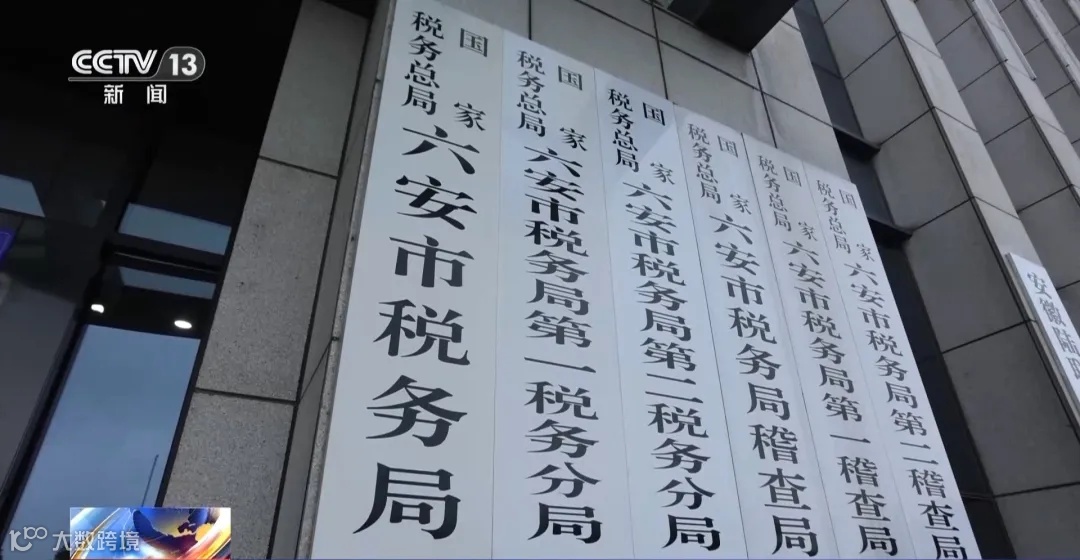 CCTV 13
新闻
国家税务总局六安市税务局
国家税务总局六安市税务局第一税务分局
国家税务总局六安市税务局第二税务分局
国家税务总局六安市税务局稽查局
国家税务总局六安市税务局第一稽查局
国家税务总局六安市税务局第二稽查局
安徽陆
大数跨境